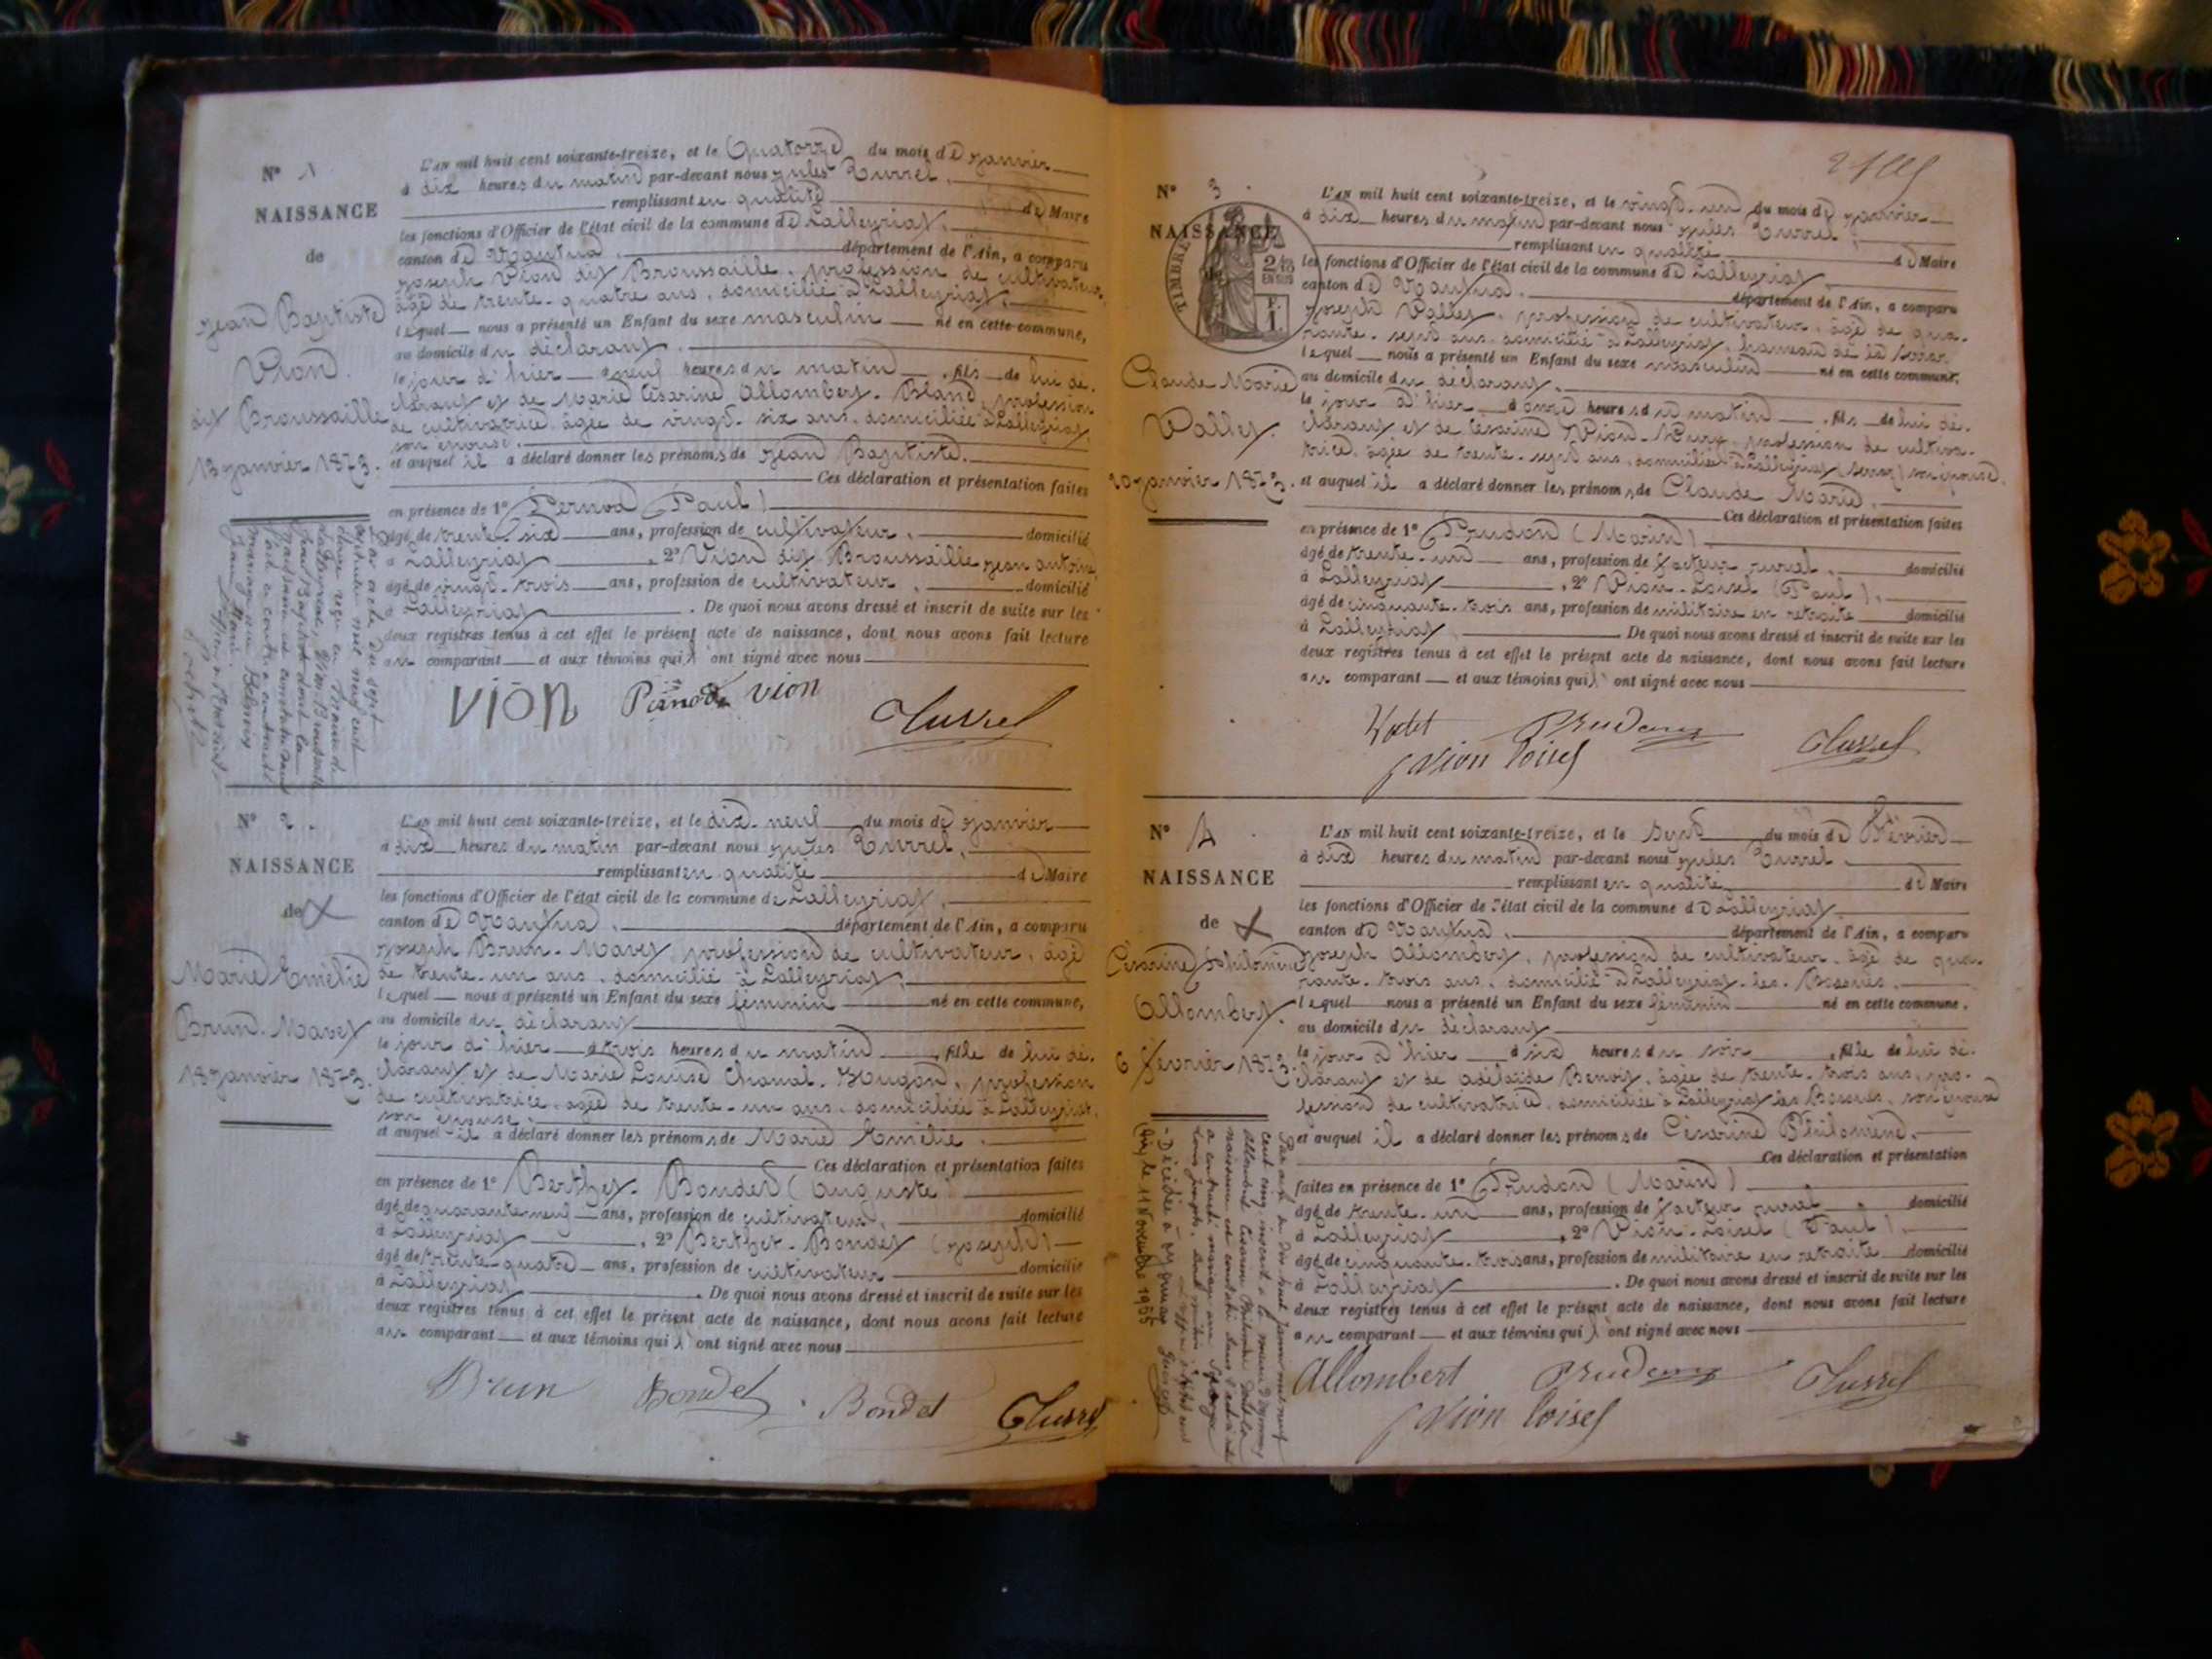 N° 1
NAISSANCE
de
Jean Baptiste
Vion
dit Broussaille
13 janvier 1873.
L'AN mil huit cent soixante-treize, et le Quatorze du mois de janvier
à dix heures du matin par-devant nous Jules Turrel,
remplissant en qualité de Maire
les fonctions d'Officier de l'état civil de la commune de Lalleyriat,
canton de Nantua, département de l'Ain, a comparu
Joseph Vion dit Broussaille, profession de cultivateur,
âgé de trente-quatre ans, domicilié à Lalleyriat,
lequel nous a présenté un Enfant du sexe masculin né en cette commune,
au domicile du déclarant.
le jour d'hier à neuf heures du matin, fils de lui dé-
clarant et de Marie Césarine Allombert-Bland, profession
de cultivatrice, âgée de vingt-six ans, domiciliée à Lalleyriat,
son épouse.
et auquel il a déclaré donner les prénoms de Jean Baptiste.
Ces déclaration et présentation faites
en présence de 1° Pernod (Paul)
âgé de trente six ans, profession de cultivateur, domicilié
à Lalleyriat, 2° Vion dit Broussaille Jean Antoine,
âgé de vingt-trois ans, profession de cultivateur, domicilié
à Lalleyriat. De quoi nous avons dressé et inscrit de suite sur les
deux registres tenus à cet effet le présent acte de naissance, dont nous avons fait lecture
au comparant et aux témoins qui ont signé avec nous
Vion vion Turrel
N° 2.
NAISSANCE
de
Marie Emélie
Brun-Mavet
18 janvier 1873.
L'AN mil huit cent soixante-treize, et le dix-neuf du mois de janvier
à dix heures du matin par-devant nous Jules Turrel,
remplissant en qualité de Maire
les fonctions d'Officier de l'état civil de la commune de Lalleyriat,
canton de Nantua, département de l'Ain, a comparu
Joseph Brun-Mavet, profession de cultivateur, âgé
de trente-un ans, domicilié à Lalleyriat,
lequel nous a présenté un Enfant du sexe féminin né en cette commune,
au domicile du déclarant
le jour d'hier à trois heures du matin, fille de lui dé-
clarant et de Marie Louise Chanal-Hugon, profession
de cultivatrice, âgée de trente-un ans, domiciliée à Lalleyriat,
son épouse.
et auquel il a déclaré donner les prénoms de Marie Emélie.
Ces déclaration et présentation faites
en présence de 1° Berthet-Bondet (Auguste)
âgé de quarante neuf ans, profession de cultivateur, domicilié
à Lalleyriat, 2° Berthet-Bondet (Joseph)
âgé de trente-quatre ans, profession de cultivateur domicilié
à Lalleyriat. De quoi nous avons dressé et inscrit de suite sur les
deux registres tenus à cet effet le présent acte de naissance, dont nous avons fait lecture
au comparant et aux témoins qui ont signé avec nous
Brun Bondet Bondet Turrel
N° 3.
NAISSANCE
de
TIMBRE
Claude Marie
Vallet.
20 janvier 1873.
L'AN mil huit cent soixante-treize, et le vingt-un du mois de janvier
à dix heures du matin par-devant nous Jules Turrel,
remplissant en qualité de Maire
les fonctions d'Officier de l'état civil de la commune de Lalleyriat,
canton de Nantua, département de l'Ain, a comparu
Joseph Vallet, profession de cultivateur, âgé de qua-
rante-sept ans, domicilié à Lalleyriat, hameau de
lequel nous a présenté un Enfant du sexe masculin né en cette commune,
au domicile du déclarant,
le jour d'hier à onze heures du matin, fils de lui dé-
clarant et de Césarine Vion- profession de cultiva-
trice, âgée de trente-sept ans, domiciliée à Lalleyriat son épouse.
et auquel il a déclaré donner les prénoms de Claude Marie.
Ces déclaration et présentation faites
en présence de 1° Prudon (Marin)
âgé de trente-un ans, profession de facteur rural, domicilié
à Lalleyriat, 2° Vion-Loisel (Paul),
âgé de cinquante-trois ans, profession de militaire en retraite domicilié
à Lalleyriat, De quoi nous avons dressé et inscrit de suite sur les
deux registres tenus à cet effet le présent acte de naissance, dont nous avons fait lecture
au comparant et aux témoins qui ont signé avec nous
Prudon Turrel
Vion loisel
N° 4.
NAISSANCE
de
Césarine Philomène
Allombert.
6 février 1873.
L'AN mil huit cent soixante-treize, et le sept du mois de Février
à dix heures du matin par-devant nous Jules Turrel,
remplissant en qualité de Maire
les fonctions d'Officier de l'état civil de la commune de Lalleyriat,
canton de Nantua, département de l'Ain, a comparu
Joseph Allombert, profession de cultivateur, âgé de qua-
rante-trois ans, domicilié à Lalleyriat-les-
lequel nous a présenté un Enfant du sexe féminin né en cette commune,
au domicile du déclarant
le jour d'hier à six heures du soir, fille de lui dé-
clarant et de Adélaïde Benoit, âgée de trente-trois ans, pro-
fession de cultivatrice, domiciliée à Lalleyriat son épouse
et auquel il a déclaré donner les prénoms de Césarine Philomène.
Ces déclaration et présentation
faites en présence de 1° Prudon (Marin)
âgé de trente-un ans, profession de facteur rural domicilié
à Lalleyriat, 2° Vion-Loisel (Paul),
âgé de cinquante-trois ans, profession de militaire en retraite domicilié
à Lalleyriat. De quoi nous avons dressé et inscrit de suite sur les
deux registres tenus à cet effet le présent acte de naissance, dont nous avons fait lecture
au comparant et aux témoins qui ont signé avec nous
Décédée à Oyonnax
le 11 Novembre 1955
Allombert Prudon Turrel
Vion loisel